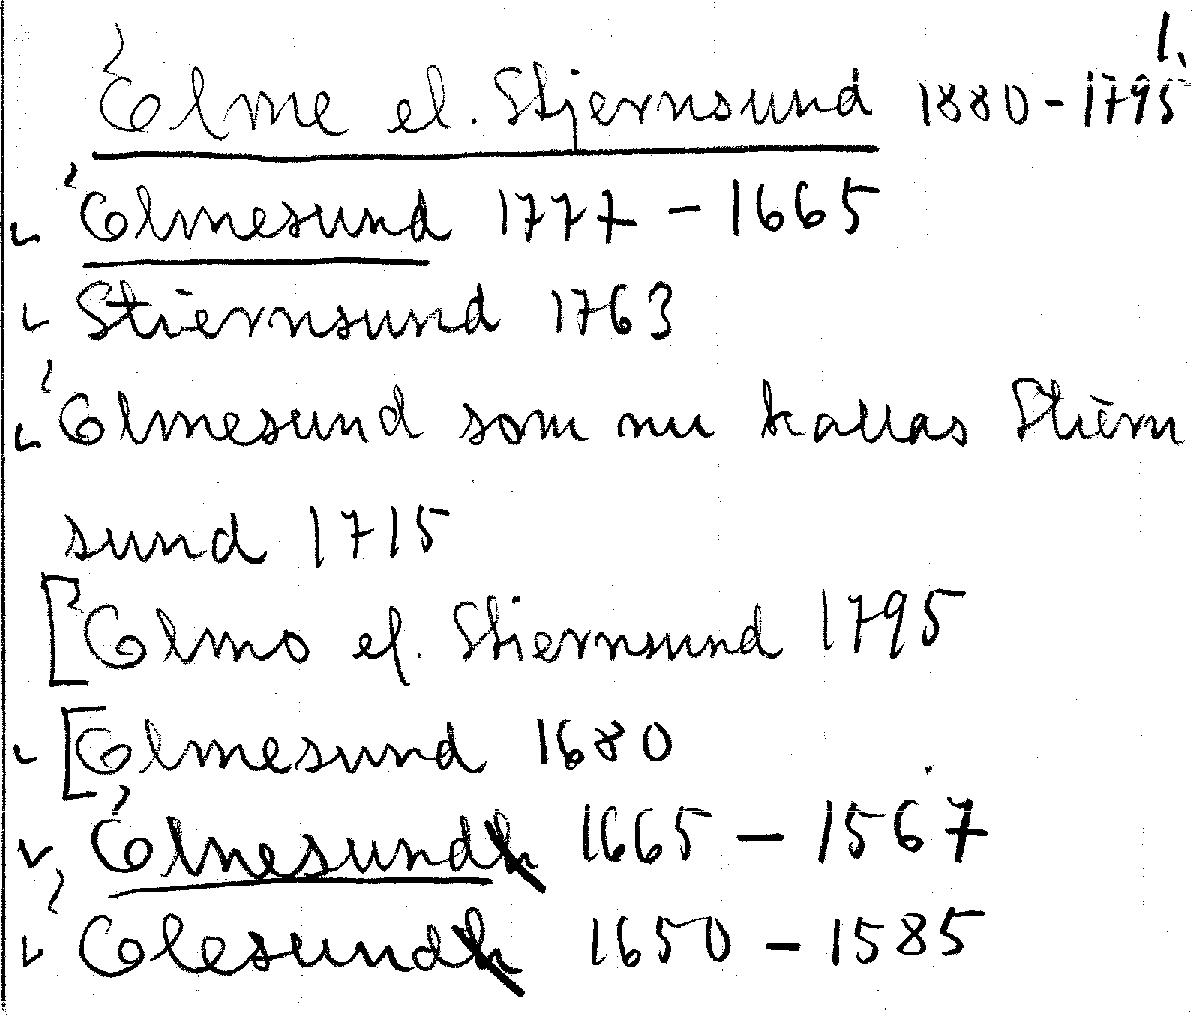 1.
Elme el. Stjernsund 1880-1795
Elmesund 1777-1665
Stiernsund 1763
Elmesund som nu kallas Stiern
sund 1715
[Elmo el. Stiernsund 1795
[Elmesund 1680
Elnesundh 1665-1567
Elesundh 1650-1585